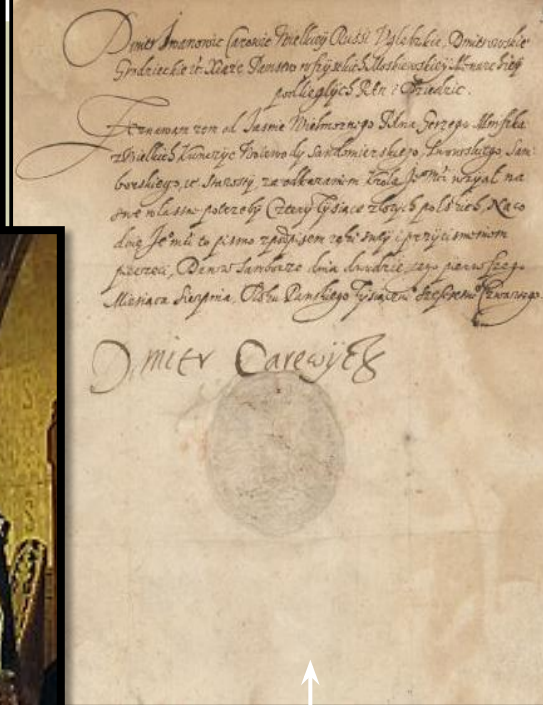 Dmitr Iwanowic Carowic Wielkiey Russi Uglebskie, Dmitrowskie
Grodzieckie etc. Xiąże
podlieglych Pan i Dziedzic.
Zeznawam zem od Jasnie Wielmoznego Pana Gerzego Mniszka
z Wielkich Kunczyc Woiewody Sandomierskiego, Lwowskiego, Sam-
borskiego, etc. Starosty, za odkazaniem Krola Je° Mci wzyął na
swe własne potrzeby Cztery Tysiące złotych polskich, Na co
daię Je° Mci to pismo z podpisem ręki swey i przycisnieniem
pieczęci, Dan w Samborze dnia dwudziestego pierwszego
Miesiąca Sierpnia, Roku Panskiego Tysiącnego Szescsetnego Czwartego.
Dmitr Carewicz